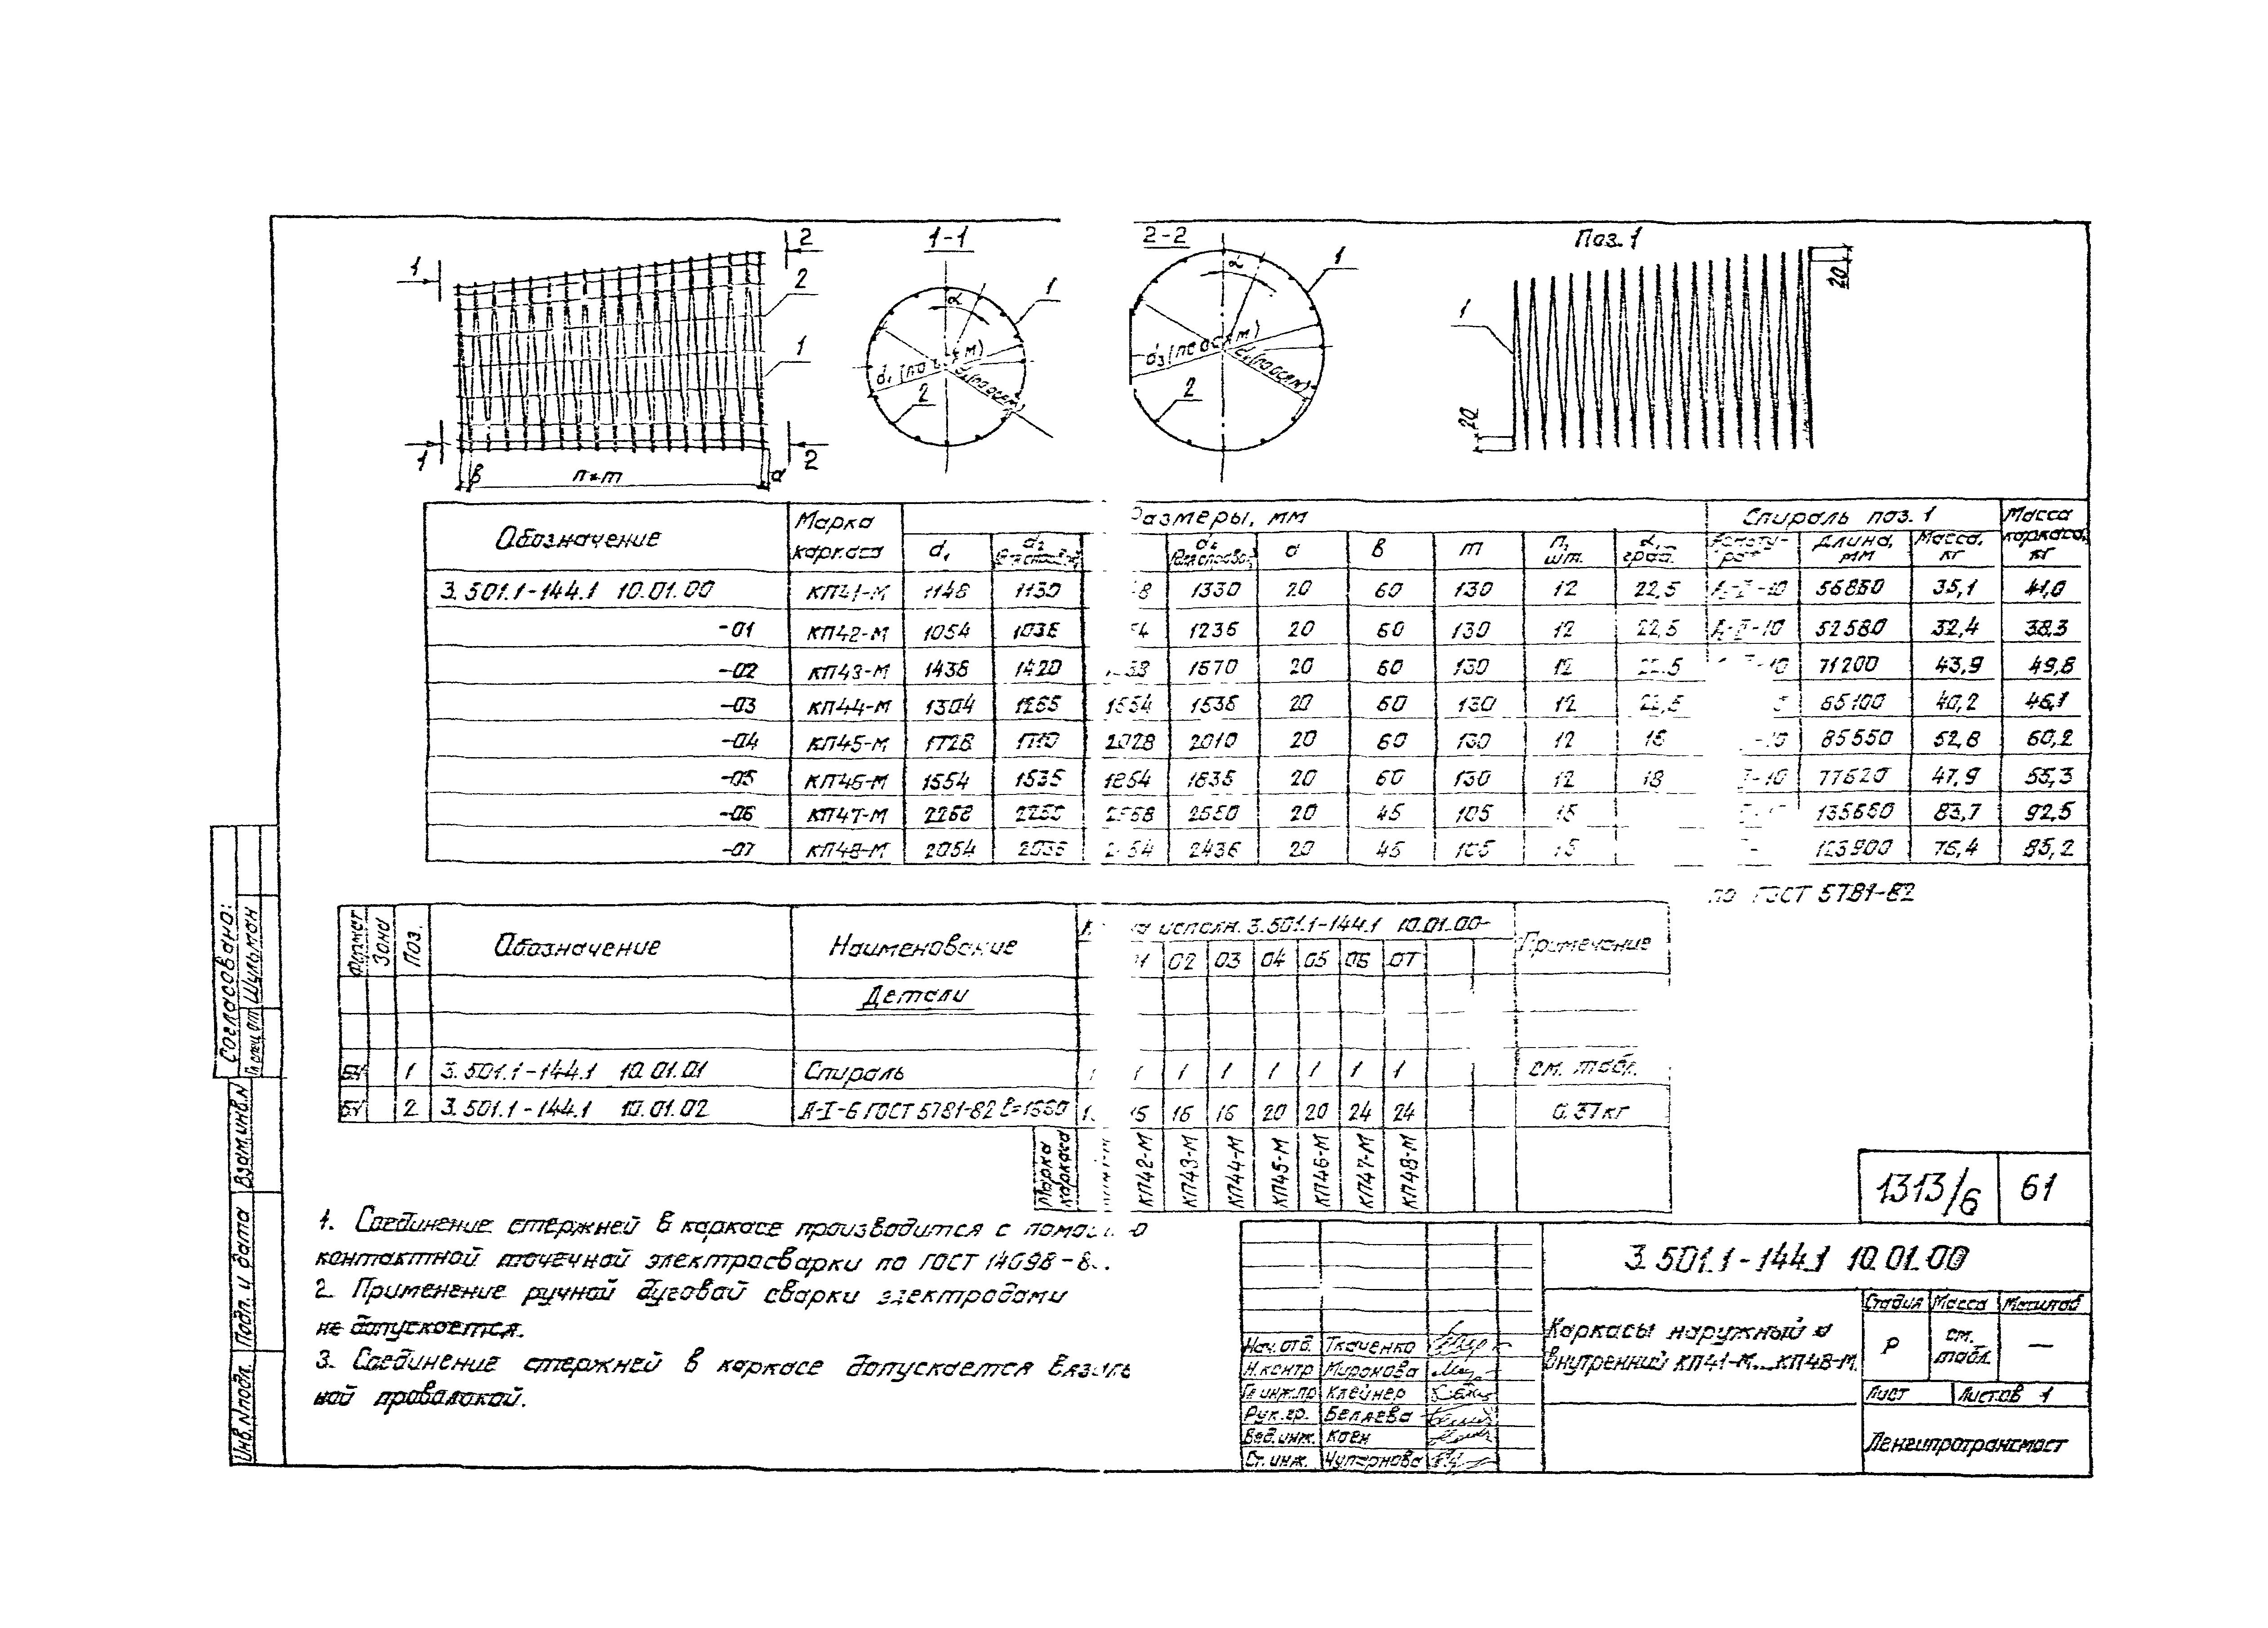 1 2 1-1 2-2 Поз. 1
2 1 1 1 1 20
α α
d₁ (по осям) d₂ (по осям) d₃ (по осям) d₄ (по осям)
2 2 20
1 2
в n×m а
Обозначение Марка каркаса Размеры, мм Спираль поз. 1 Масса каркаса, кг
d₁ d₂ d₄ а в m n, шт. α, град. Длина, мм Масса, кг
3.501.1-144.1 10.01.00 КП41-М 1148 1130 1330 20 60 130 12 22,5 А-I-10 56850 35,1 41,0
-01 КП42-М 1054 1036 1236 20 60 130 12 22,5 А-I-10 52580 32,4 38,3
-02 КП43-М 1438 1420 1670 20 60 130 12 22,5 71200 43,9 49,8
-03 КП44-М 1304 1286 1554 1536 20 60 130 12 22,5 65100 40,2 46,1
-04 КП45-М 1728 1710 2028 2010 20 60 130 12 18 85550 52,8 60,2
-05 КП46-М 1554 1536 1854 1836 20 60 130 12 18 77620 47,9 55,3
-06 КП47-М 2268 2250 2568 2550 20 45 105 15 135660 83,7 92,5
-07 КП48-М 2054 2036 2436 20 45 105 15 123900 76,4 85,2
по ГОСТ 5781-82
Формат Зона Поз. Обозначение Наименование на исполн. 3.501.1-144.1 10.01.00- Примечание
02 03 04 05 06 07
Детали
БЧ 1 3.501.1-144.1 10.01.01 Спираль 1 1 1 1 1 1 1 см. табл.
БЧ 2 3.501.1-144.1 10.01.02 А-I-6 ГОСТ 5781-82 ℓ=1660 16 16 16 20 20 24 24 0.37кг
Марка каркаса КП42-М КП43-М КП44-М КП45-М КП46-М КП47-М КП48-М
1. Соединение стержней в каркасе производится с
контактной точечной электросварки по ГОСТ 14098-
2. Применение ручной дуговой сварки электродами
не допускается.
3. Соединение стержней в каркасе допускается вязаль
ной проволокой.
1313/6 61
3.501.1-144.1 10.01.00
Каркасы наружный и
внутренний КП41-М...КП48-М.
Стадия Масса Масштаб
Р см. табл. —
Лист Листов 1
Ленгипротрансмост
Нач. отд. Ткаченко
Н. контр Миронова
Гл инж.пр Клейнер
Рук. гр. Беляева
Вед. инж. Коен
Ст. инж. Чупарнова
Согласовано:
Гл спец. от Шульман
Взам.инв.N
Подп. и дата
Инв. N подл.